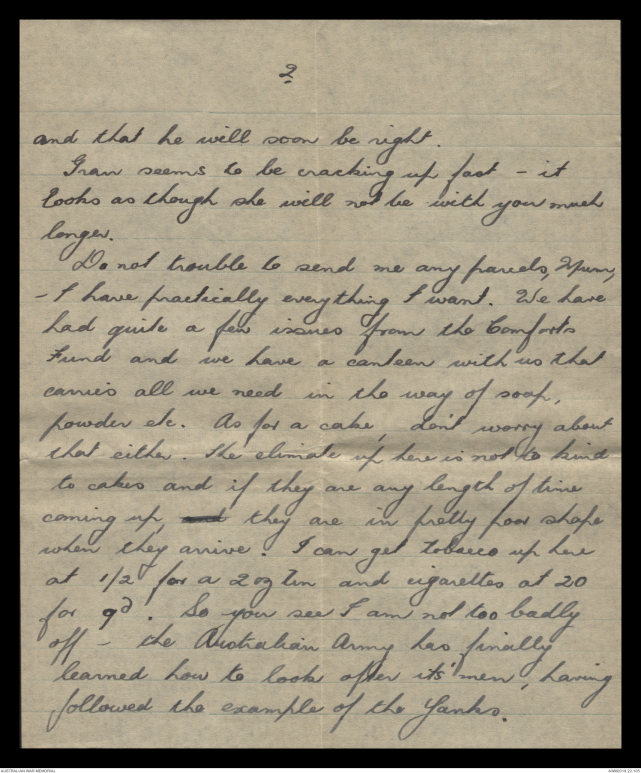 2
and that he will soon be right.
Gran seems to be cracking up fast - it
looks as though she will not be with you much
longer.
Do not trouble to send me any parcels, Mum,
- I have practically everything I want. We have
had quite a few issues from the Comforts
Fund and we have a canteen with us that
carries all we need in the way of soap,
powder etc. As for a cake, don't worry about
that either. The climate up here is not to kind
to cakes and if they are any length of time
coming up and they are in pretty poor shape
when they arrive. I can get tobacco up here
at 1/2 for a 2 oz tin and cigarettes at 20
for 9d. So you see I am not too badly
off - the Australian Army has finally
learned how to look after its' men, having
followed the example of the Yanks.
AUSTRALIAN WAR MEMORIAL